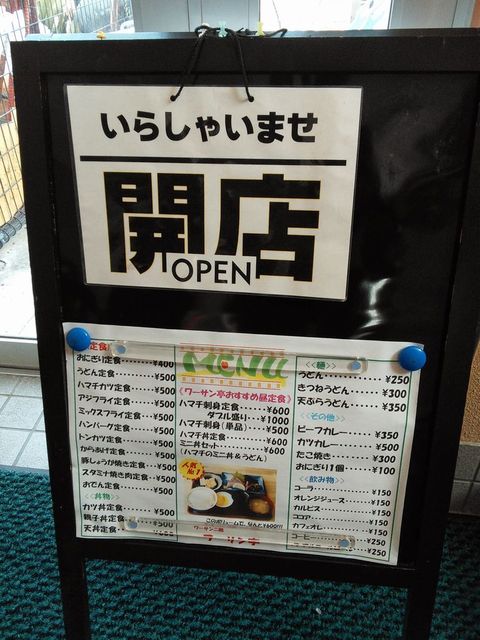 いらしゃいませ
開店
OPEN
定食
おにぎり定食・・・¥400
うどん定食・・・・・¥500
ハマチカツ定食・・・¥500
アジフライ定食・・・¥500
ミックスフライ定食・・・¥500
ハンバーグ定食・・・¥500
トンカツ定食・・・・¥500
からあげ定食・・・・¥500
豚しょうが焼き定食・・・¥500
スタミナ焼肉定食・・・¥500
おでん定食・・・・・¥500
<<丼物>>
カツ丼定食・・・・・¥500
親子丼定食・・・・・¥500
天丼定食・・・・・
MENU
《ワーサン亭おすすめ昼定食》
ハマチ刺身定食・・・¥600
ダブル盛り・・・¥1000
ハマチ刺身(単品)・・・¥500
ハマチ丼定食・・・・¥600
ミニ丼セット・・・・¥600
(ハマチのミニ丼&うどん)
人気
No.1
このボリュームで、なんと¥600!!!
ワーサン亭
<<麺>>
うどん・・・・・・¥250
きつねうどん・・・・¥300
天ぷらうどん・・・・¥350
<<その他>>
ビーフカレー・・・・¥350
カツカレー・・・・・¥500
たこ焼き・・・・・・¥300
おにぎり1個・・・・¥100
<<飲み物>>
コーラ・・・・・・・¥150
オレンジジュース・・・¥150
カルピス・・・・・・¥150
ココア・・・・・・・¥150
カフェオレ・・・・・¥150
コーヒー・・・・・・¥250
¥250